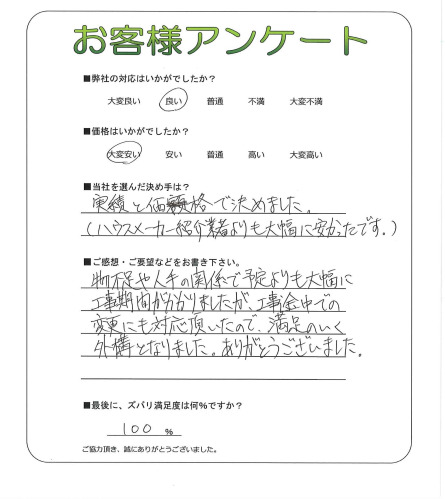 お客様アンケート
■弊社の対応はいかがでしたか？
大変良い 良い 普通 不満 大変不満
■価格はいかがでしたか？
大変安い 安い 普通 高い 大変高い
■当社を選んだ決め手は？
実績と価格で決めました。
(ハウスメーカー紹介業者よりも大幅に安かったです。)
■ご感想・ご要望などをお書き下さい。
物不足や人手の関係で予定よりも大幅に
工事期間がかかりましたが、工事途中での
変更にも対応頂いたので、満足のいく
外構となりました。ありがとうございました。
■最後に、ズバリ満足度は何％ですか？
100 %
ご協力頂き、誠にありがとうございました。